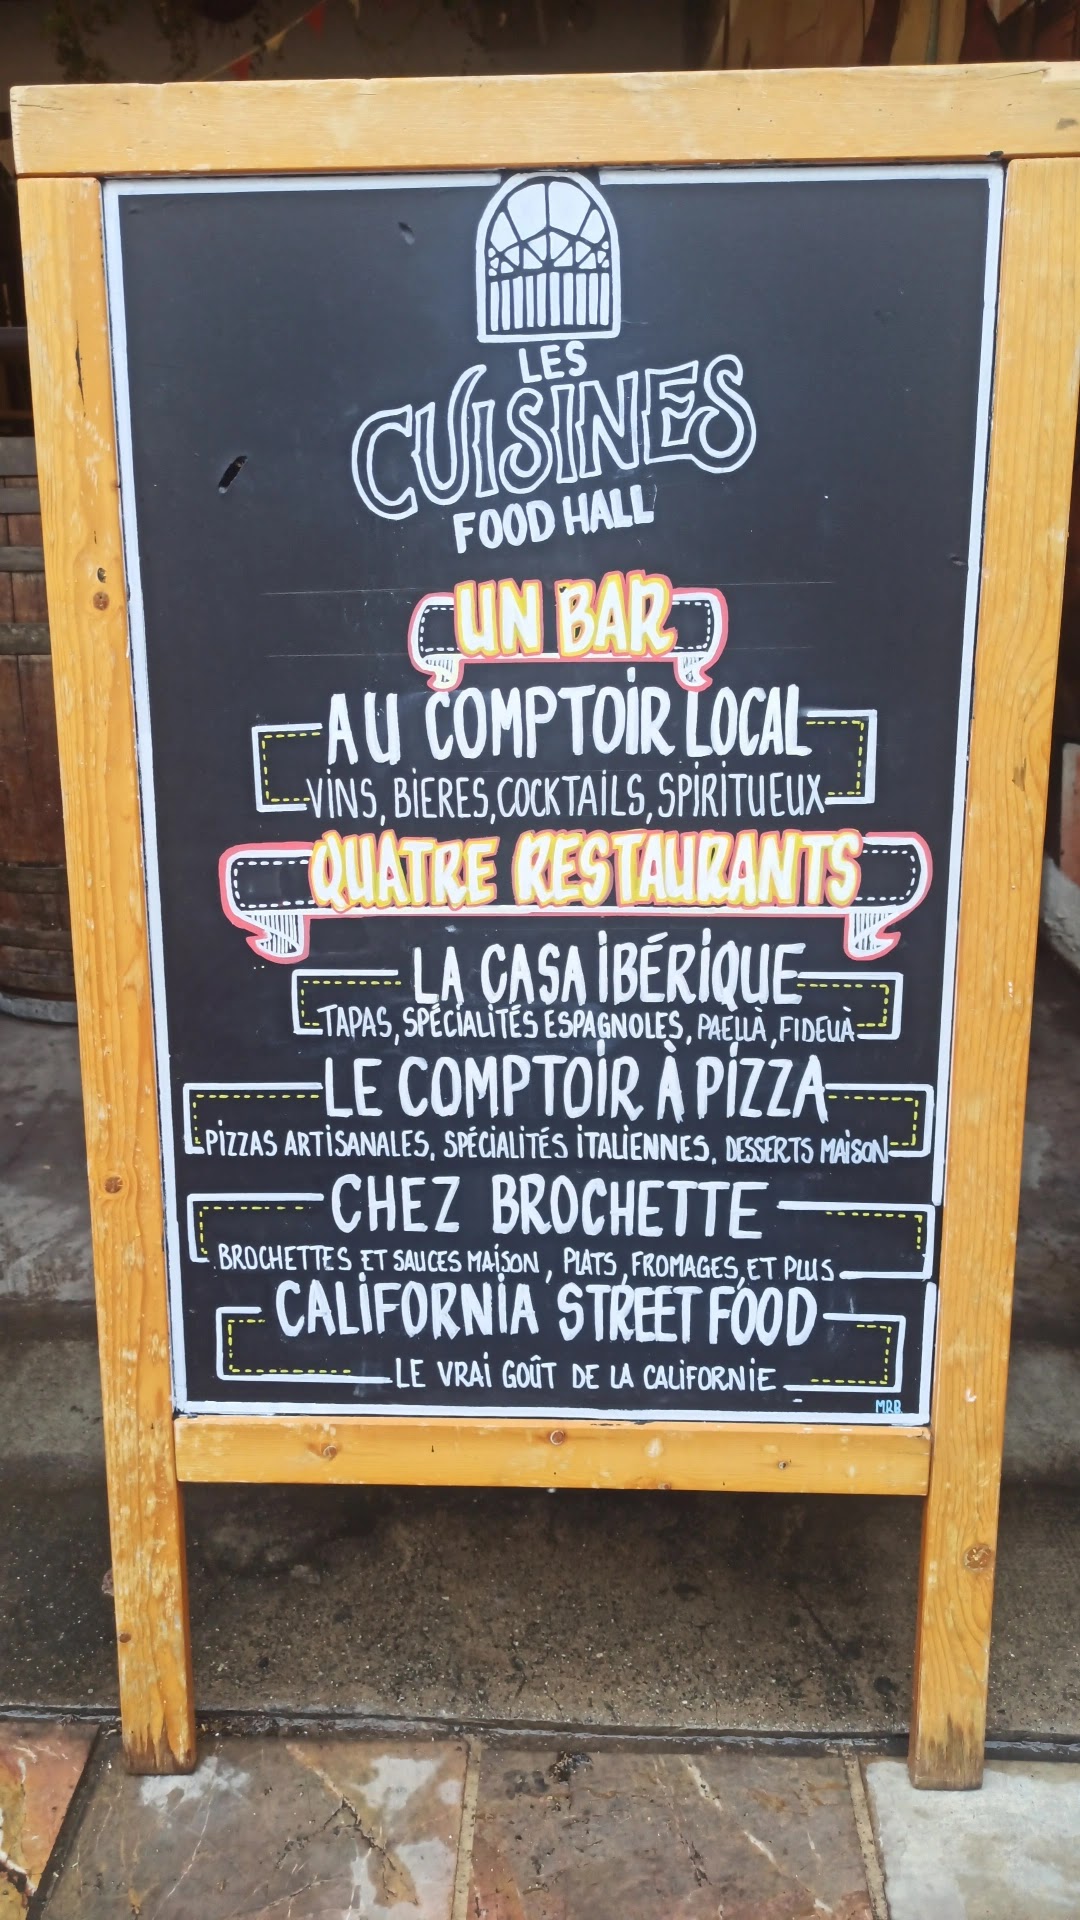 LES
CUISINES
FOOD HALL
UN BAR
AU COMPTOIR LOCAL
VINS, BIERES, COCKTAILS, SPIRITUEUX
QUATRE RESTAURANTS
LA CASA IBÉRIQUE
TAPAS, SPÉCIALITÉS ESPAGNOLES, PAELLÀ, FIDEUÀ
LE COMPTOIR À PIZZA
PIZZAS ARTISANALES, SPÉCIALITÉS ITALIENNES, DESSERTS MAISON
CHEZ BROCHETTE
BROCHETTES ET SAUCES MAISON, PLATS, FROMAGES, ET PLUS
CALIFORNIA STREET FOOD
LE VRAI GOÛT DE LA CALIFORNIE